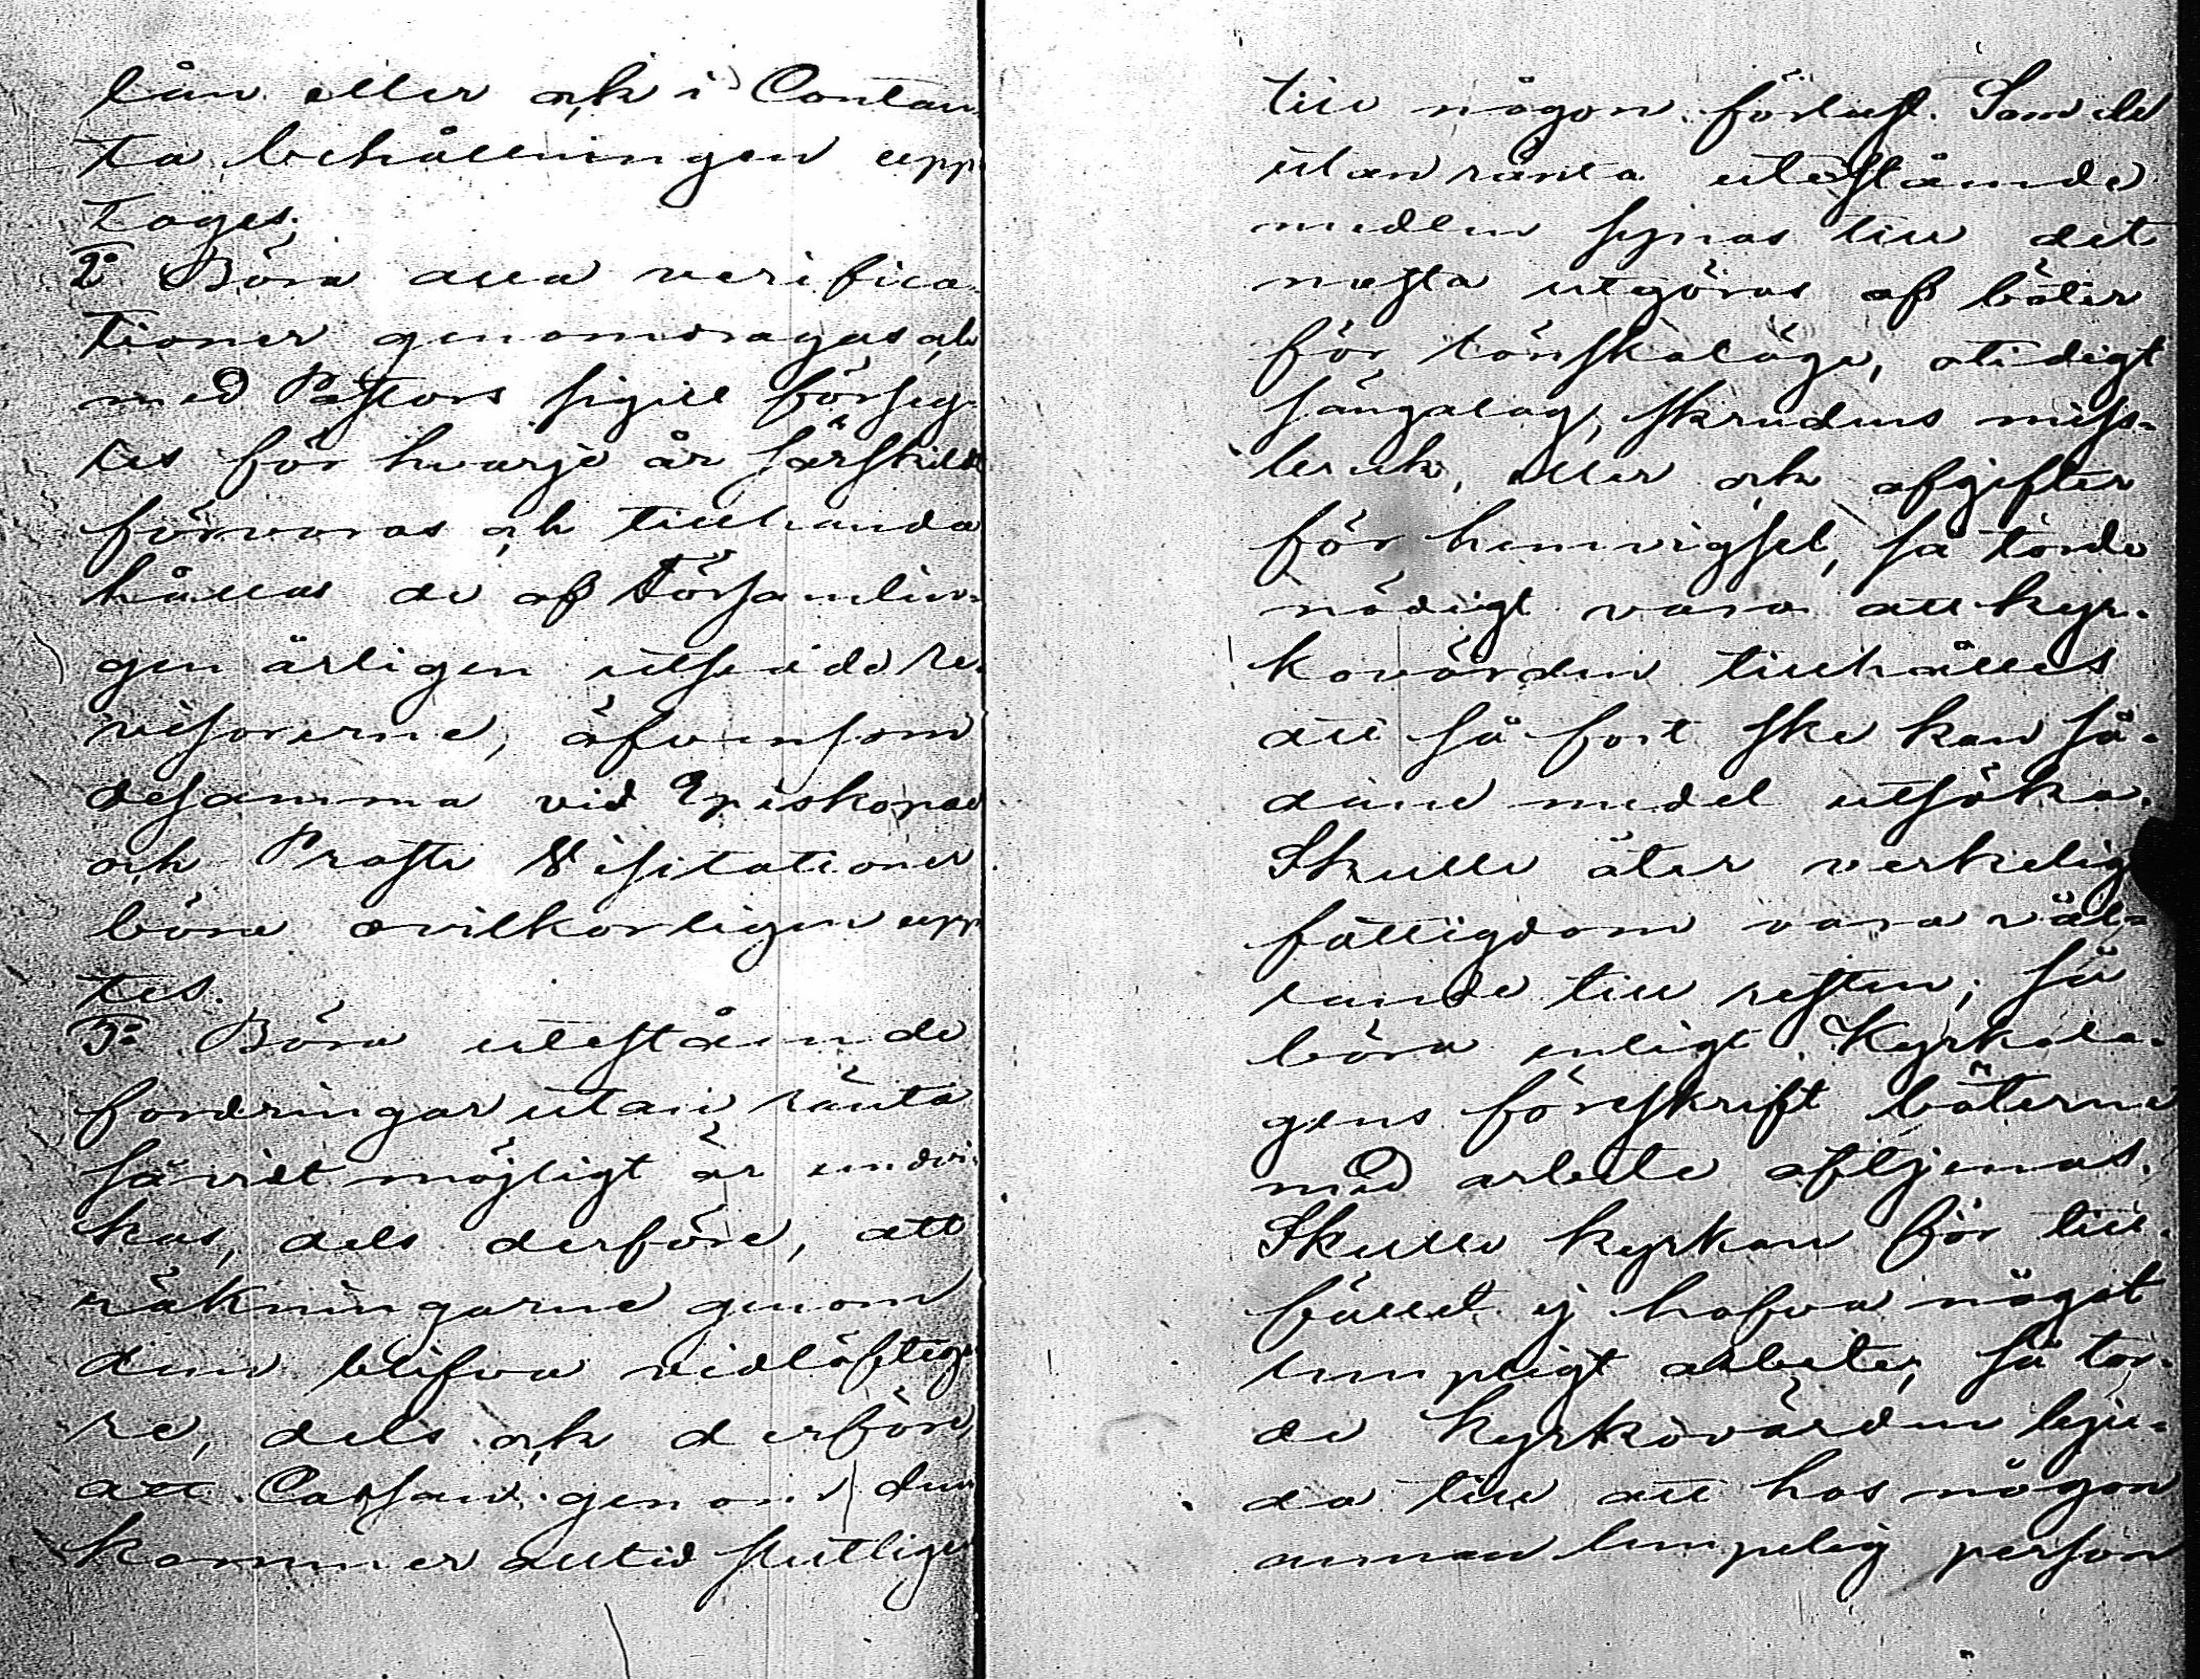 lån eller ock i Contan-
ta behållningen upp-
tages.
2:o Böra alla verifica-
tioner genomdragas och
med Pastors sigill förseg-
las för hvarje år särskildt
förvaras och tillhanda
hållas de af Församlin-
gen årligen utsedde re-
visorerne, äfvensom
desamma vid Episkopal
och Prosts Visitationer
böra ovilkorligen upp-
tes.
3:o Böra utestående
fordringar utan ränta
såvidt möjligt är undvi-
kas, dels derföre, att
räkningarne genom
dem blifva vidlöftiga-
re, dels ock derföre
att Cassan genom dem
kommer alltid slutligen
till någon förlust. Som de
utan ränta utestående
medlen synas till det
mesta utgöras af böter
för lönskaläge, otidigt
sängalag, skrudens miss-
bruk, eller ock afgifter
för hemvigsel, så torde
nödigt vara att kyr-
kovärden tillhålles
att så fort ske kan så-
dane medel utsöka.
Skulle åter verkelig
fattigdom vara vål-
lande till resten, så
böra enligt Kyrkola-
gens föreskrift böterne
med arbete aftjenas.
Skulle kyrkan för till-
fället ej hafva något
lämpligt arbete, så tor-
de kyrkovärden beju-
da till att hos någon
annan lämpelig person